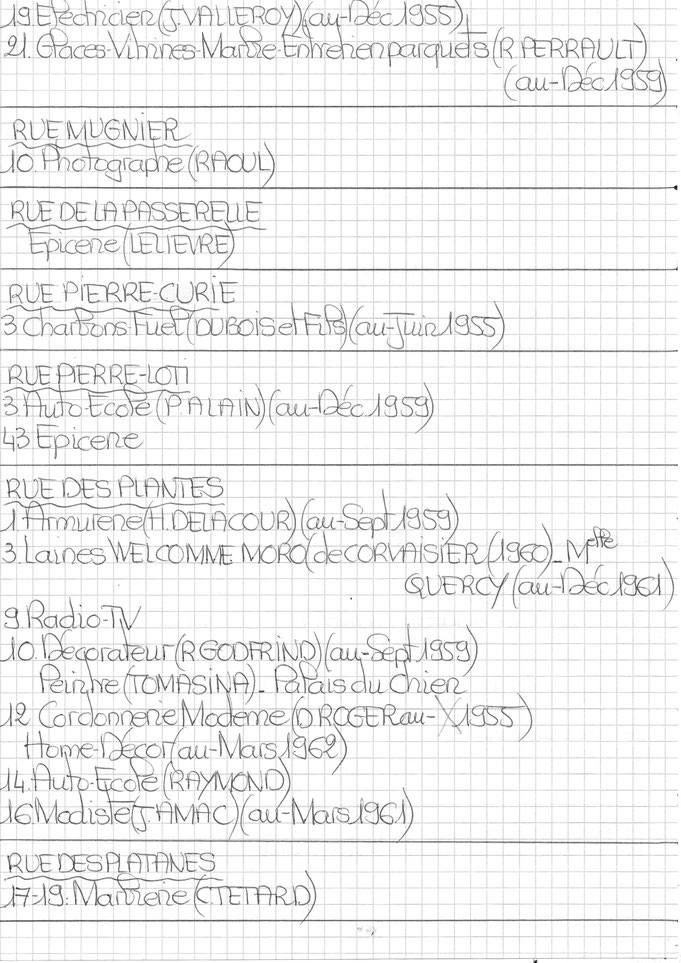 19. Electricien (J. VALLEROY) (au-Déc 1955)
21. Glaces-Vitrines-Marbre-Entretien parquets (R. PERRAULT)
(au-Déc 1959)
RUE MUGNIER
10. Photographe (RAOUL)
RUE DE LA PASSERELLE
Epicerie (LELIEVRE)
RUE PIERRE-CURIE
3. Charbons-Fuel (DUBOIS et Fils) (au-Juin 1955)
RUE PIERRE-LOTI
3. Auto-Ecole (P. ALAIN) (au-Déc 1959)
43 Epicerie
RUE DES PLANTES
1. Armurerie (H. DELACOUR) (au-Sept 1959)
3. Laines WELCOMME MORO (de CORVAISIER (1960)_Melle
QUERCY (au-Déc 1961)
9 Radio-TV
10. Décorateur (R GODFRIND) (au-Sept 1959)
Peintre (TOMASINA)_Palais du Chien
12 Cordonnerie Moderne (D ROGER au-X 1955)
Home-Décor (au-Mars 1962)
14. Auto-Ecole (RAYMOND)
16 Modiste (J. AMAC) (au-Mars 1961)
RUE DES PLATANES
17-19: Marbrerie (C. TETARD)